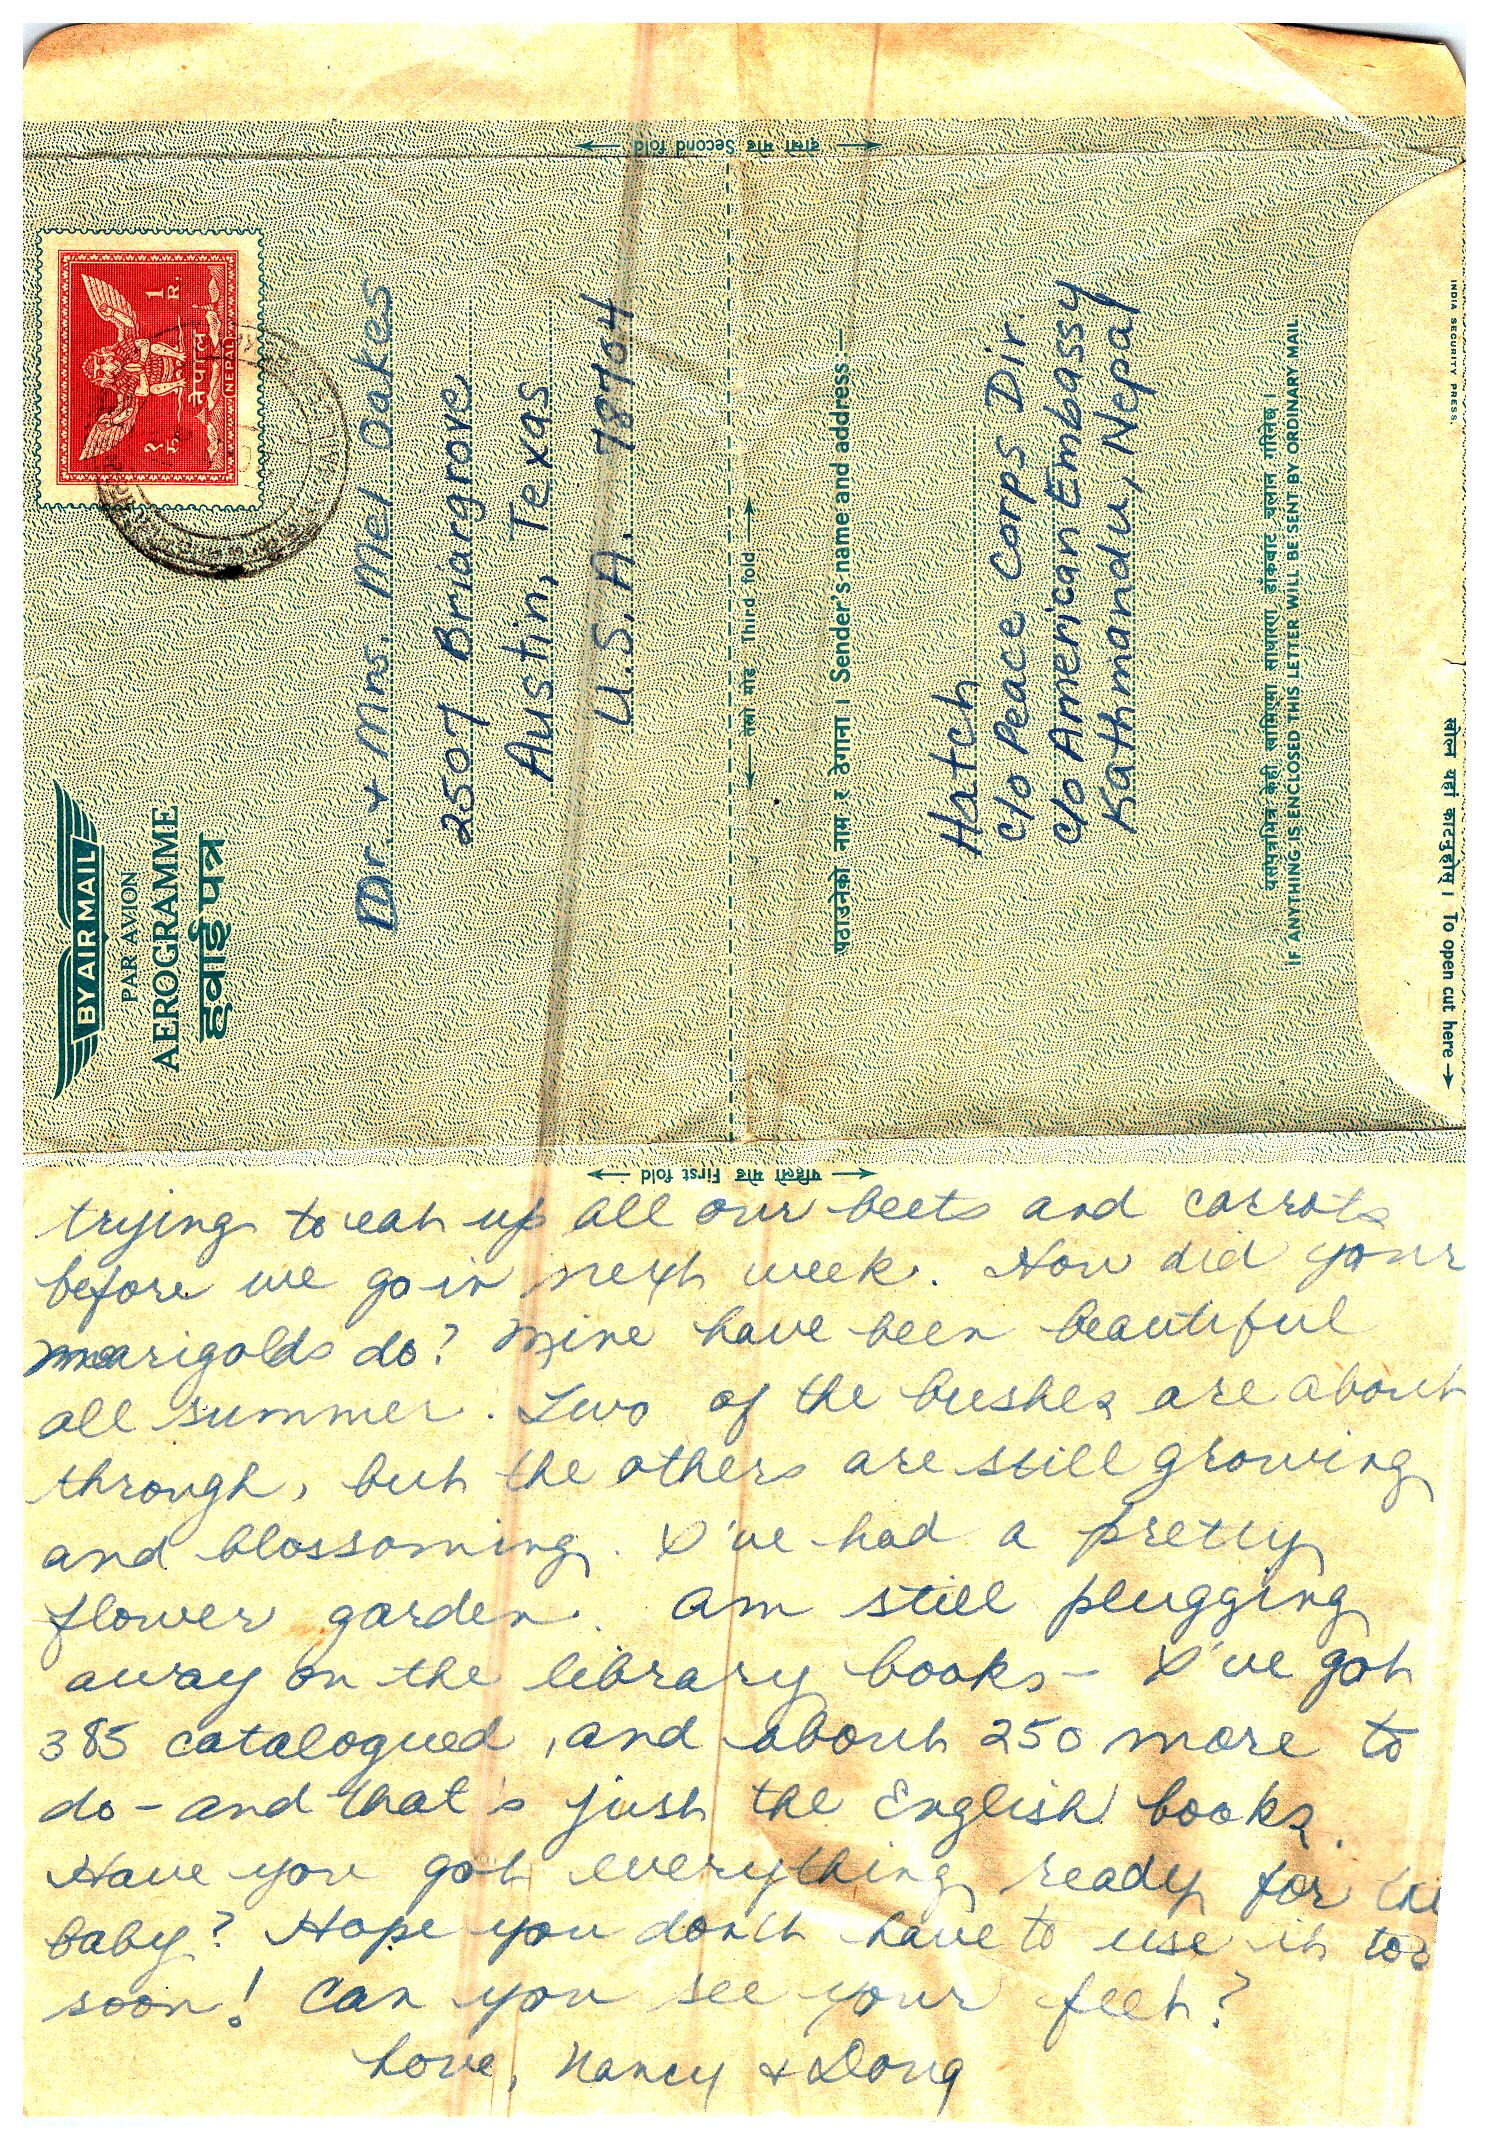 ← दोस्रो मोड Second fold →
१ रु.
1 R.
नेपाल
NEPAL
BY AIR MAIL
PAR AVION
AEROGRAMME
हवाई पत्र
Dr. + Mrs. Mel Oakes
2507 Briargrove
Austin, Texas
U.S.A. 78704
← तेस्रो मोड Third fold →
पठाउनेको नाम र ठेगाना । Sender's name and address:—
Hatch
c/o Peace Corps Dir.
c/o American Embassy
Kathmandu, Nepal
यसपत्रभित्र केही खामिएमा साधारण डाँकबाट चलान गरिनेछ ।
IF ANYTHING IS ENCLOSED THIS LETTER WILL BE SENT BY ORDINARY MAIL
INDIA SECURITY PRESS.
खोल्न यहां काट्नुहोस् । To open cut here →
← पहिलो मोड First fold →
trying to eat up all our beets and carrots
before we go in next week. How did your
marigolds do? Mine have been beautiful
all summer. Two of the bushes are about
through, but the others are still growing
and blossoming. I've had a pretty
flower garden. Am still plugging
away on the library books - I've got
385 catalogued, and about 250 more to
do - and that's just the English books.
Have you got everything ready for the
baby? Hope you don't have to use it too
soon! Can you see your feet?
Love, Nancy + Doug